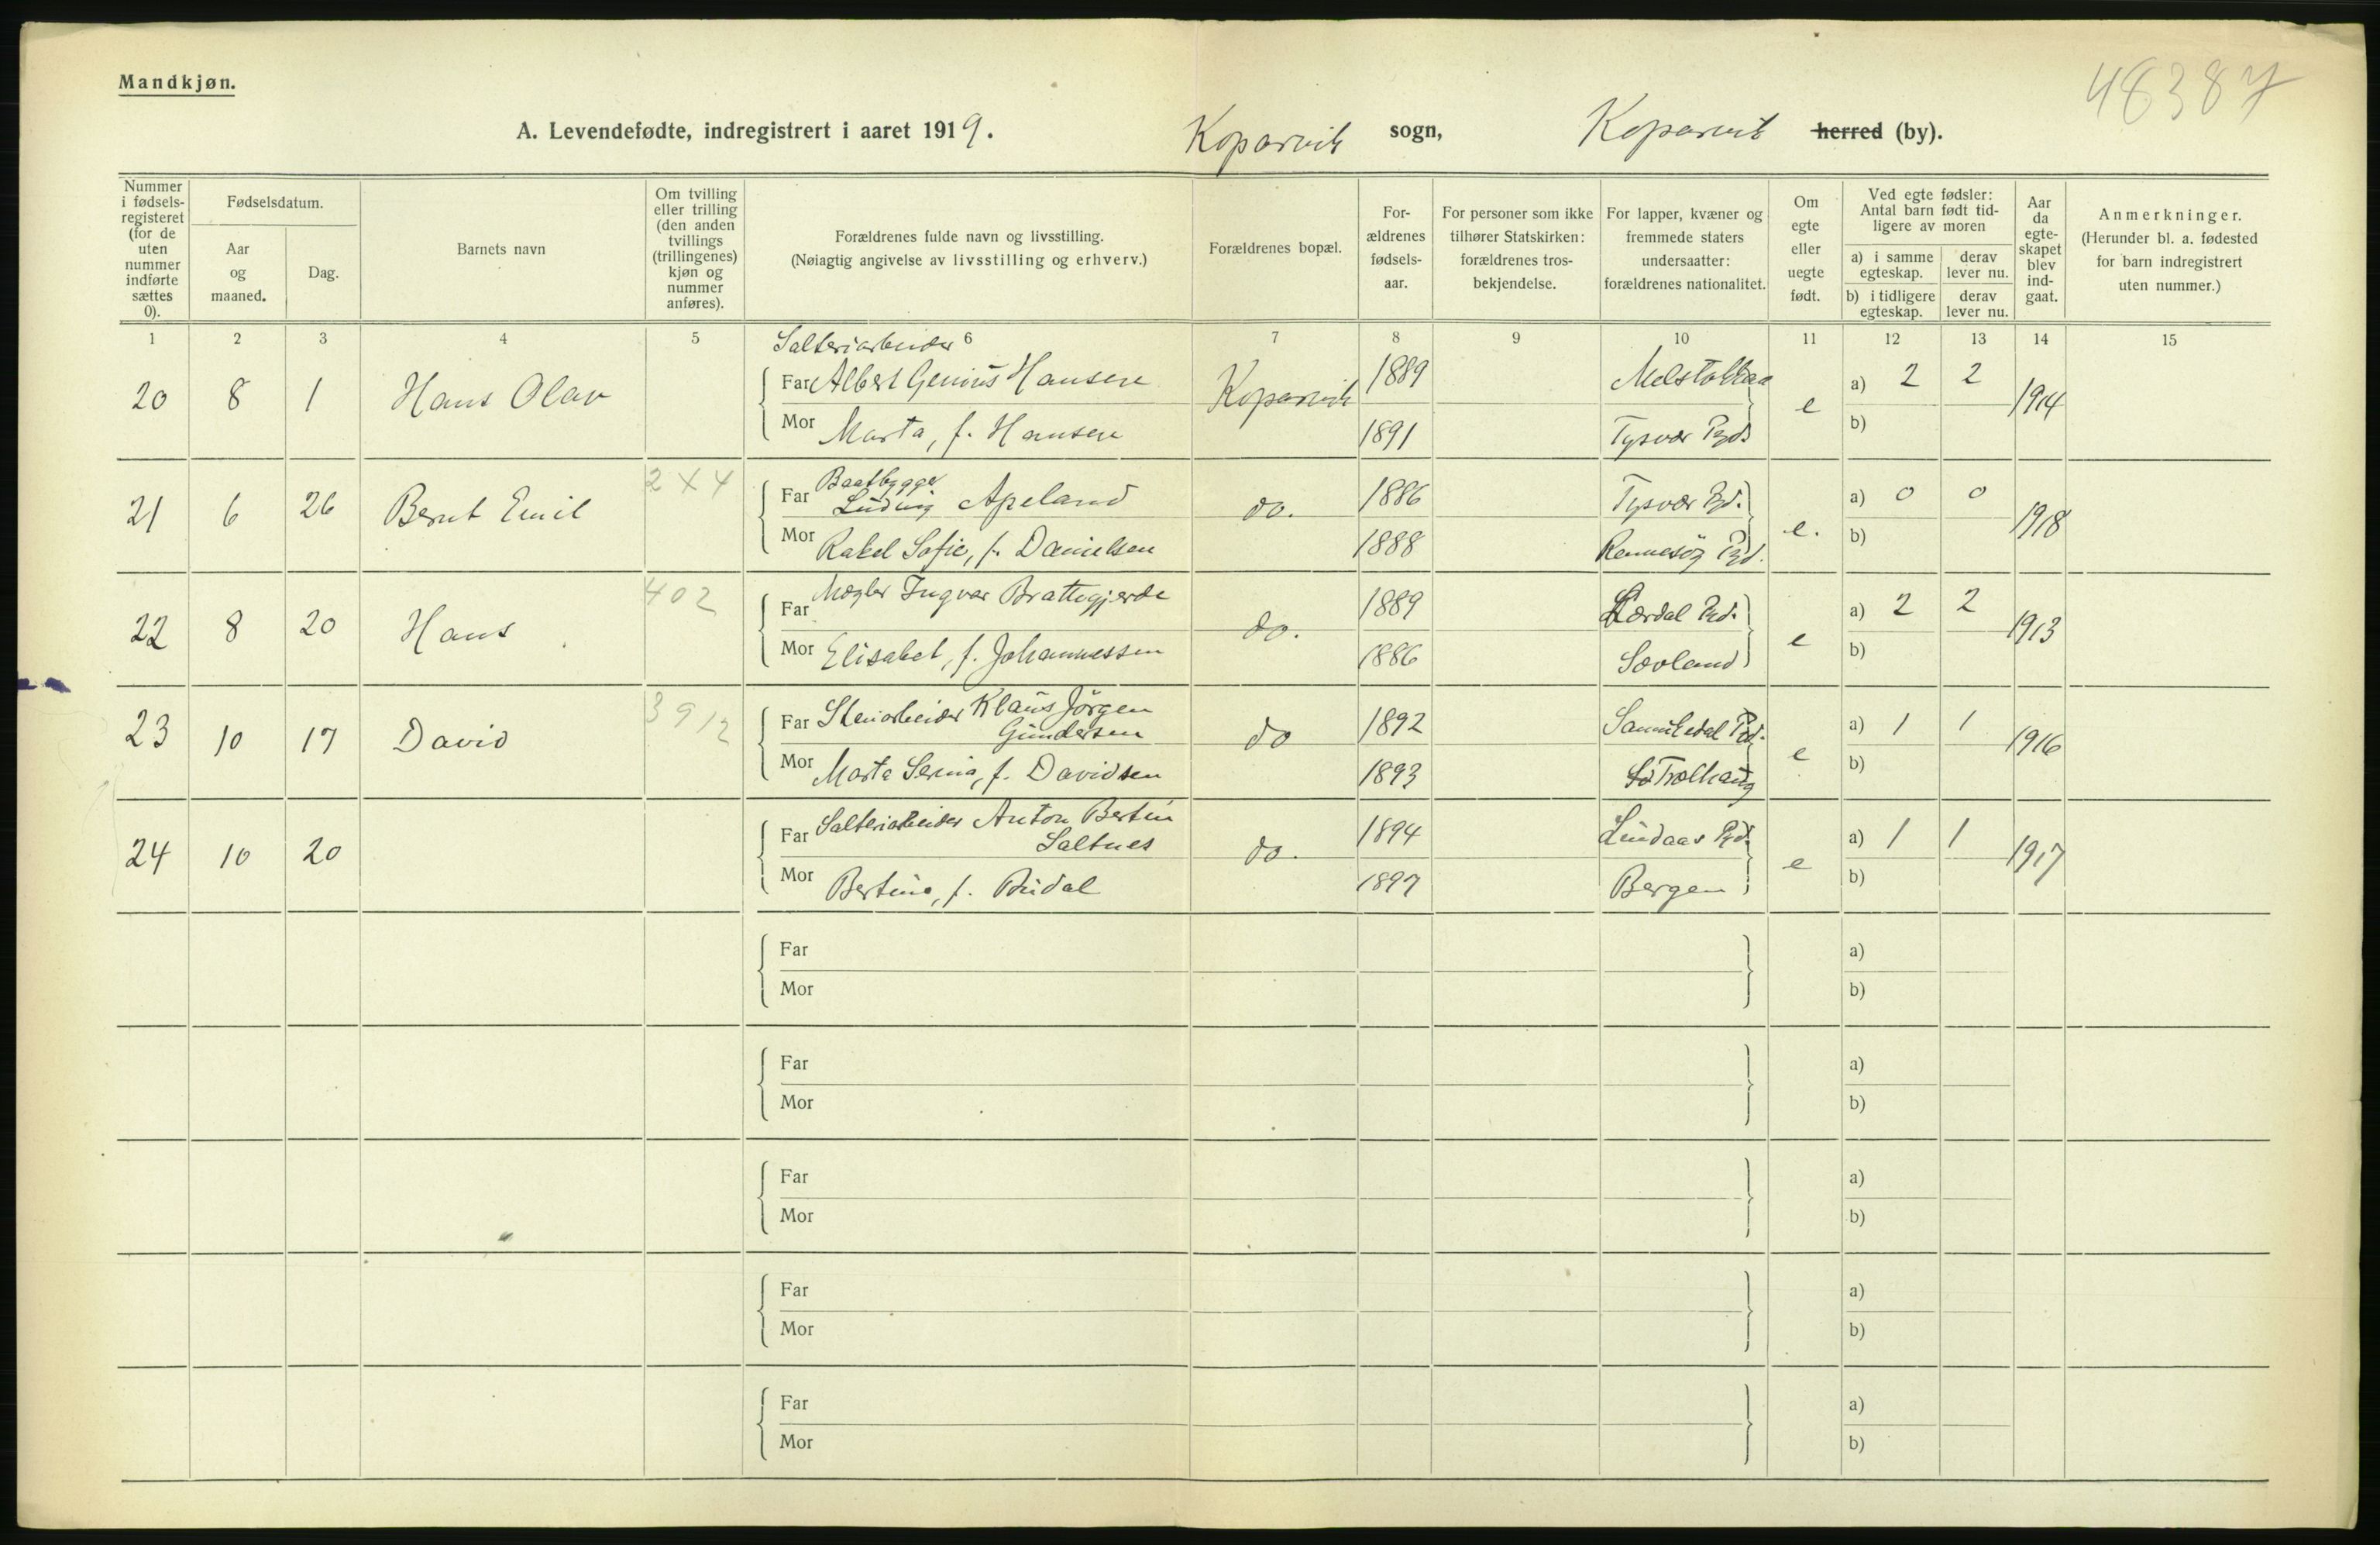 Mandkjøn.
48387
A. Levendefødte, indregistrert i aaret 1919. Kopervik sogn, Kopervik herred (by).
Nummer i fødsels-registeret (for de uten nummer indførte sættes 0).
Fødselsdatum.
Aar og maaned.
Dag.
Barnets navn
Om tvilling eller trilling (den anden tvillings (trillingenes) kjøn og nummer anføres).
Forældrenes fulde navn og livsstilling.
(Nøiagtig angivelse av livsstilling og erhverv.)
Forældrenes bopæl.
For-ældrenes fødsels-aar.
For personer som ikke tilhører Statskirken: forældrenes tros-bekjendelse.
For lapper, kvæner og fremmede staters undersaatter: forældrenes nationalitet.
Om egte eller uegte født.
Ved egte fødsler: Antal barn født tid-ligere av moren
a) i samme egteskap. derav lever nu.
b) i tidligere egteskap. derav lever nu.
Aar da egte-skapet blev ind-gaat.
Anmerkninger.
(Herunder bl. a. fødested for barn indregistrert uten nummer.)
1 2 3 4 5 6 7 8 9 10 11 12 13 14 15
Salteriarbeider
20 8 1 Hans Olav Far Albert Genius Hansen Kopervik 1889 e a) 2 2 1914
Mor Marta, f. Hansen 1891 Tysvær Pgd. b)
21 6 26 Bernt Emil 2 X 4 Far Baatbygger Ludvig Apeland do. 1886 Tysvær Pgd. e. a) 0 0 1918
Mor Rakel Sofie, f. Danielsen 1888 Rennesøy Pgd. b)
22 8 20 Hans 402 Far Mægler Ingvar Brattegjerde do. 1889 Lærdal Pgd. e a) 2 2 1913
Mor Elisabet, f. Johannessen 1886 Sævland b)
23 10 17 David 3912 Far Stenarbeider Klaus Jörgen Gundersen do 1892 Sannikedal Pgd. e a) 1 1 1916
Mor Marta Serina, f. Davidsen 1893 Trælhaug b)
24 10 20 Far Salteriarbeider Anton Bertin Saltnes do. 1894 Lindaas Pgd. e a) 1 1 1917
Mor Bertine, f. 1897 Bergen b)
Far a)
Mor b)
Far a)
Mor b)
Far a)
Mor b)
Far a)
Mor b)
Far a)
Mor b)